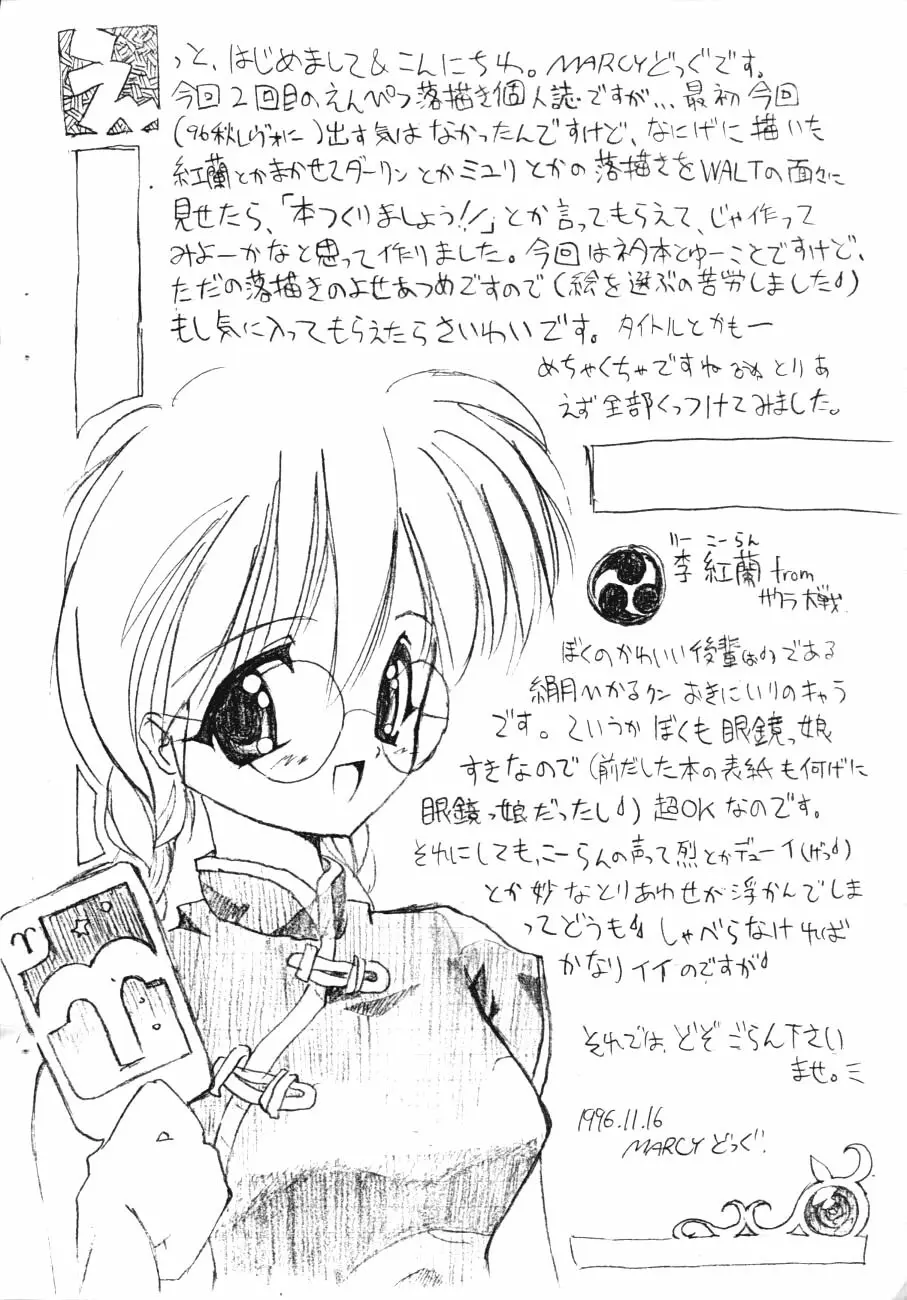 えっと、はじめまして&こんにちわ。MARCYどっぐです。
今回2回目のえんぴつ落描き個人誌ですが…最初今回
(96秋レヴォに)出す気はなかったんですけど、なにげに描いた
紅蘭とかまかせてダーリンとかミユリとかの落描きをWALTの面々に
見せたら、「本つくりましょう!!」とか言ってもらえて、じゃ作って
みよーかなと思って作りました。今回はネタ本とゆーことですけど、
ただの落描きのよせあつめですので(絵を選ぶの苦労しました)
もし気に入ってもらえたらさいわいです。タイトルとかもー
めちゃくちゃですね とりあ
えず全部くっつけてみました。
りー こーらん
李 紅蘭 from
サクラ大戦
ぼくのかわいい後輩(はぁと)である
絹月いかるクンおきにいりのキャラ
です。というかぼくも眼鏡っ娘
すきなので(前だした本の表紙も何げに
眼鏡っ娘だったし)超OKなのです。
それにしても、こーらんの声って烈とかデューイ(げっ)
とか妙なとりあわせが浮かんでしま
ってどうも しゃべらなければ
かなりイイのですが
それでは、どぞ ごらん下さい
ませ。
1996.11.16
MARCYどっぐ.